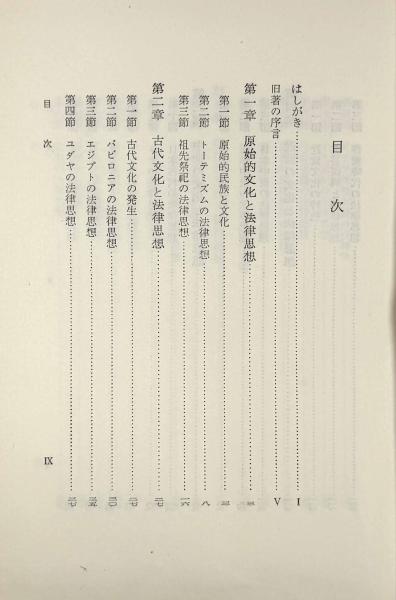 目次
はしがき……………I
旧著の序言……………V
第一章 原始的文化と法律思想……………三
第一節 原始的民族と文化……………三
第二節 トーテミズムの法律思想……………八
第三節 祖先祭祀の法律思想……………一六
第二章 古代文化と法律思想……………
第一節 古代文化の発生……………
第二節 バビロニアの法律思想……………
第三節 エジプトの法律思想……………
第四節 ユダヤの法律思想……………
目次
IX